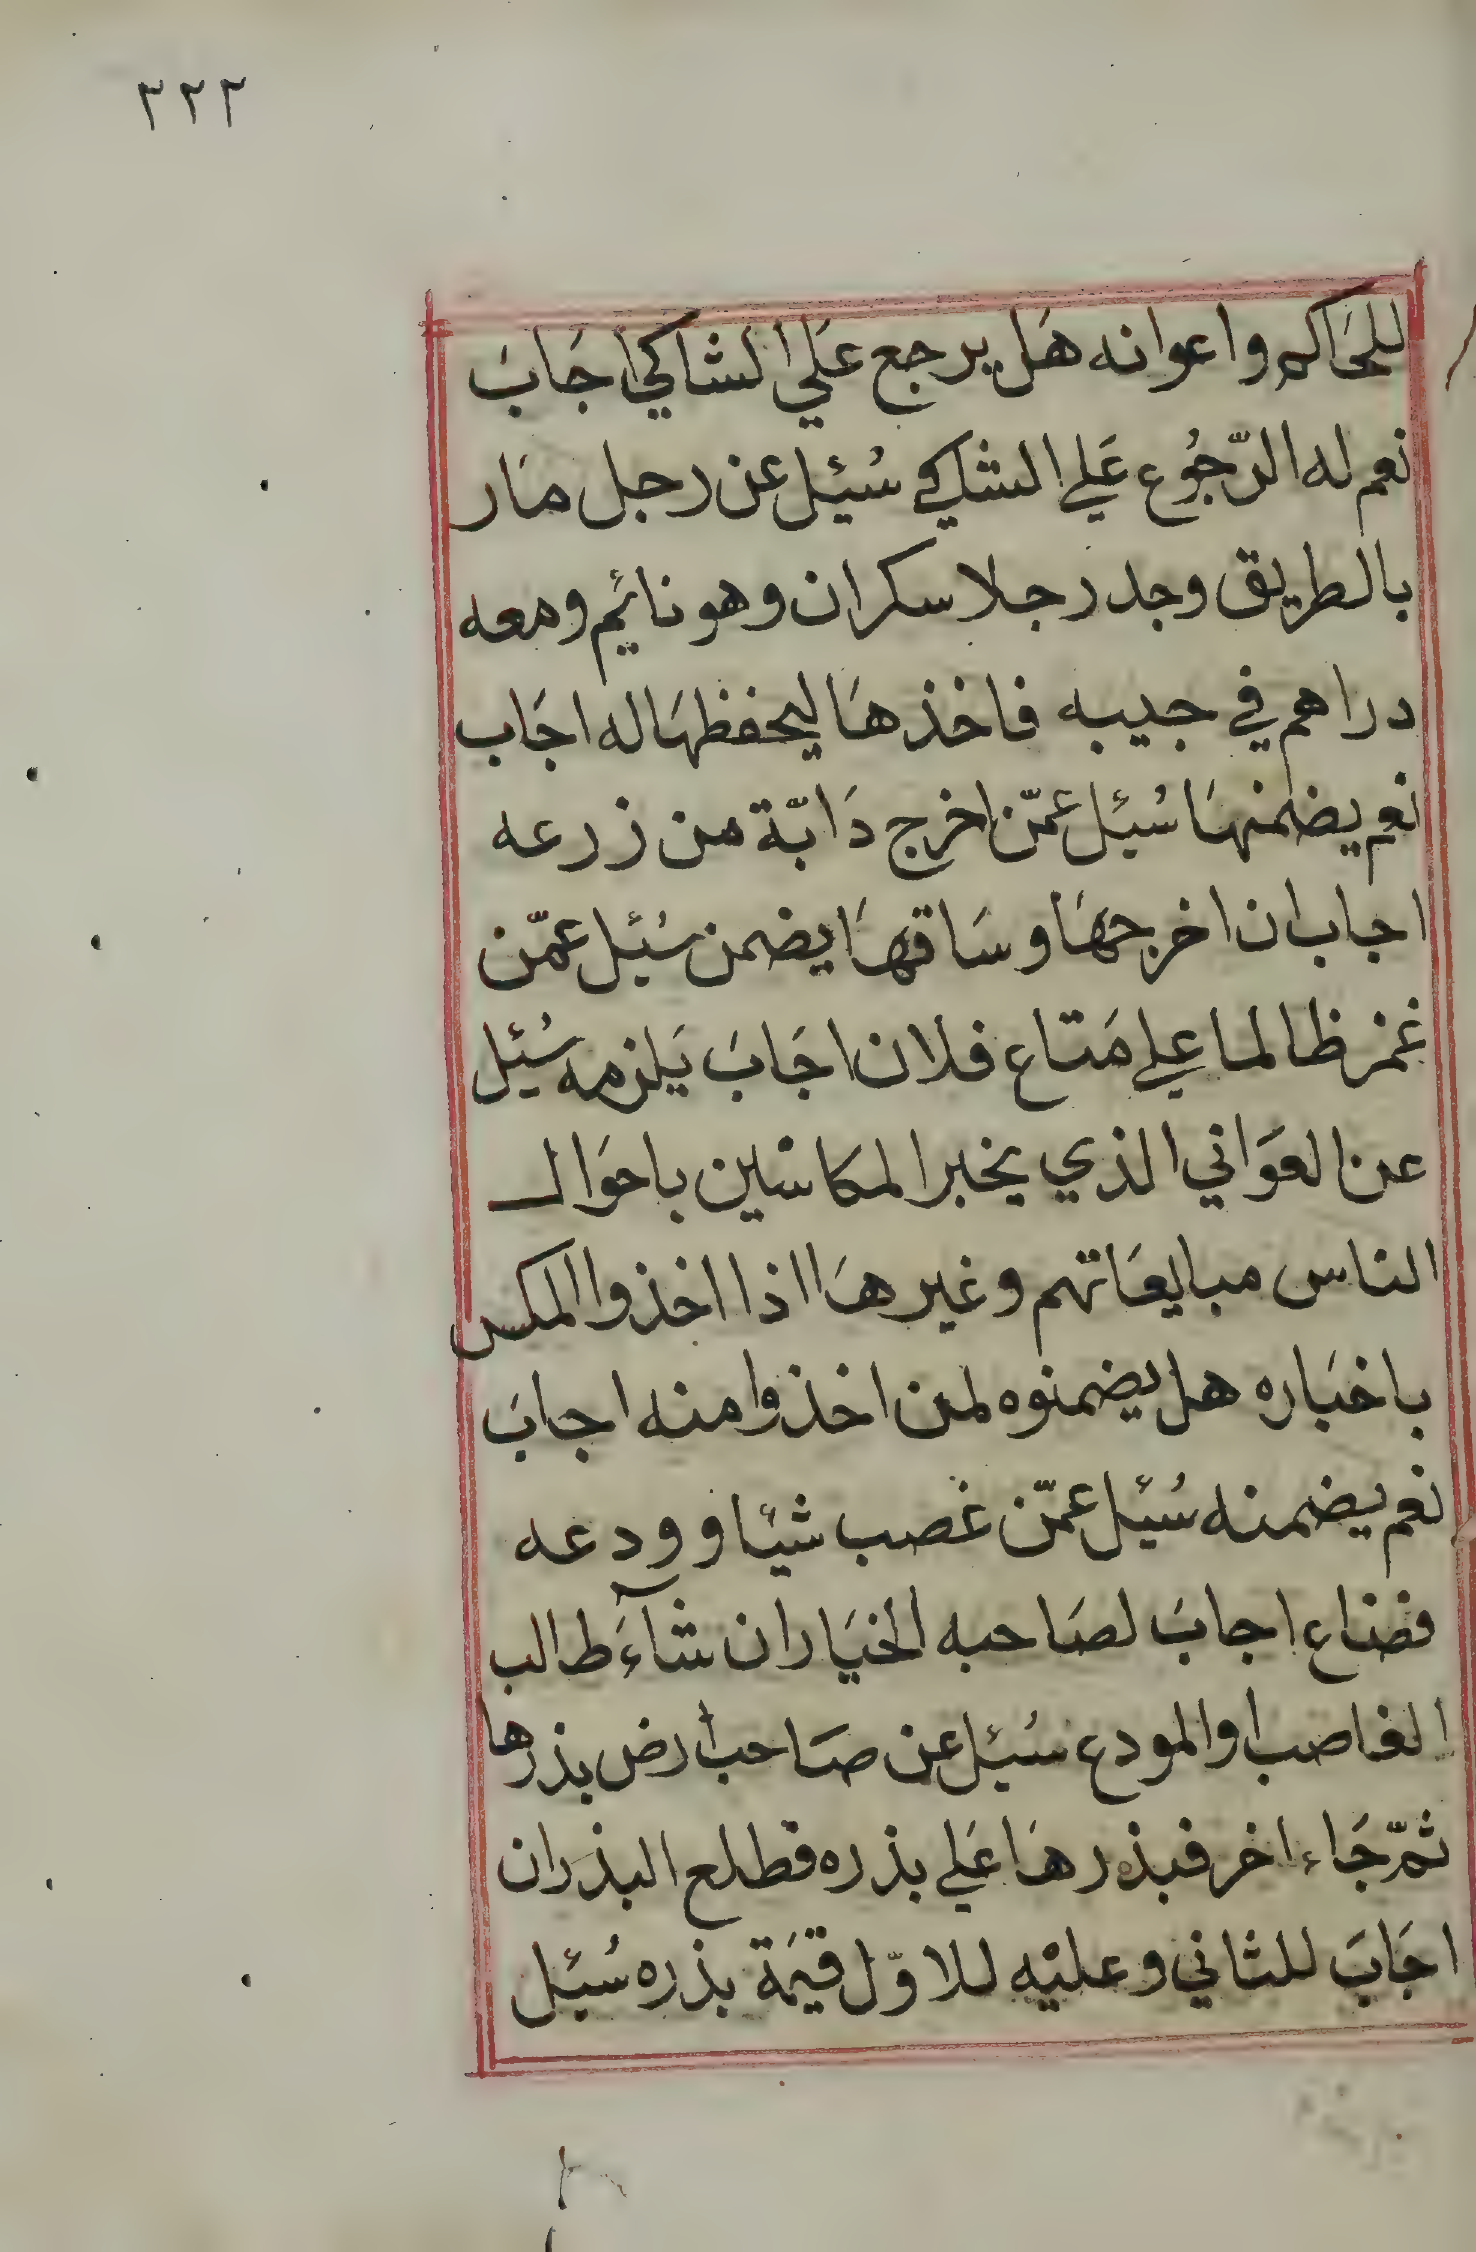 ٢٢٢
للحَاكم واعوانه هَل يرجع عَلي الشاكي اجَابَ
نعم له الرّجُوع عَلي الشاكي سُئِل عن رجل مَار
بالطريق وجد رجلا سكران وهو نائم ومعه
دراهم في جيبه فاخذهَا ليحفظهَا له اجَاب
نعم يضمنهَا سُئِل عمّن اخرج دَابّة من زرعه
اجاب ان اخرجهَا وسَاقهَا يضمن سُئِل عمّن
غمز ظالما علي مَتاع فلان اجَابَ يَلزمه سُئِل
عن العوَاني الذي يخبر المكاسين باحوَال
الناس مبايعَاتهم وغيرهَا اذا اخذوا المكس
باخبَاره هل يضمنوه لمن اخذوا منه اجابَ
نعم يضمنه سُئِل عمّن غصب شيئا وودعه
فضاع اجابَ لصَاحبه الخيَار ان شآءَ طالب
الغاصب او المودع سُئِل عن صَاحب أرض بذرها
ثمّ جَاء اخر فبذرهَا عَلي بذره فطلع البذران
اجَابَ للثاني وعليْه للاوّل قيمَة بذره سُئِل